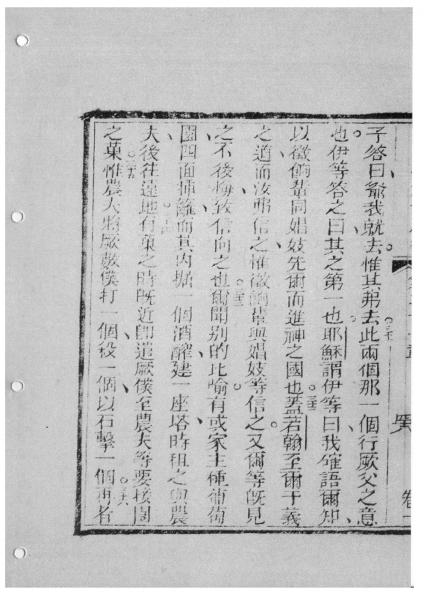 子答曰爺我就去惟其弗去此兩個那一個行厥父之意
也伊等答之曰其之第一也耶穌謂伊等曰我確語爾知
以徵餉輩同娼妓先爾而進神之國也蓋若翰至爾于義
之道而汝弗信之惟徵餉輩與娼妓等信之又爾等旣見
之不後悔致信向之也爾聞別的比喻有或家主種葡萄
園四面揷籬而其內掘一個酒醡建一座塔時租之與農
夫後往遠地有菓之時旣近卽遣厥僕至農夫等要接園
之菓惟農夫將厥數僕打一個殺一個以石擊一個再者